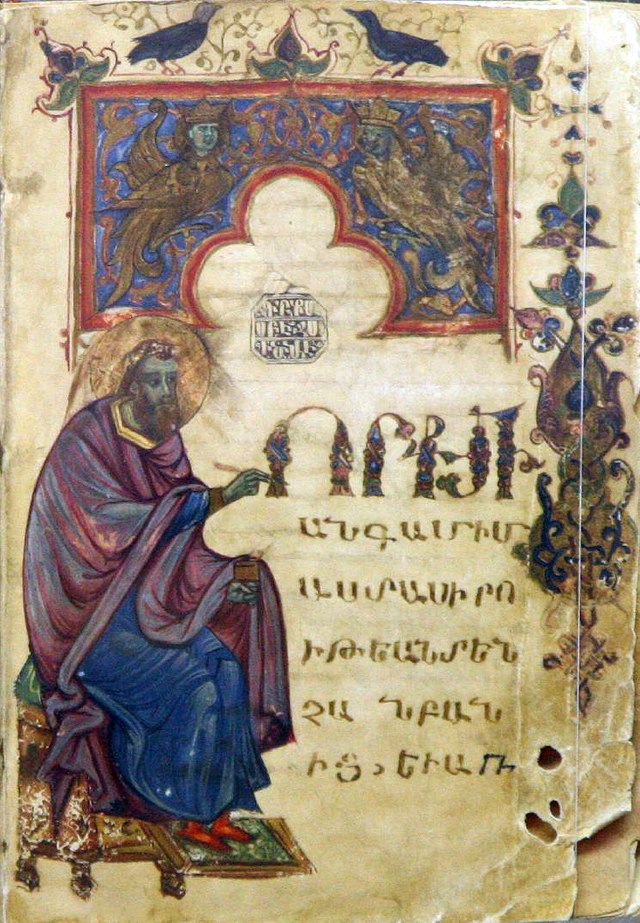 ՈՐՔՄԻ
ԱՆԳԱՄԻՄ
ԱՍՏԱՍԻՐՈ
ԻԹԵԱՆՏԵՆ
ՉԱ ՆԲԱՆ
ԻՑ, ԵՒԱՌ